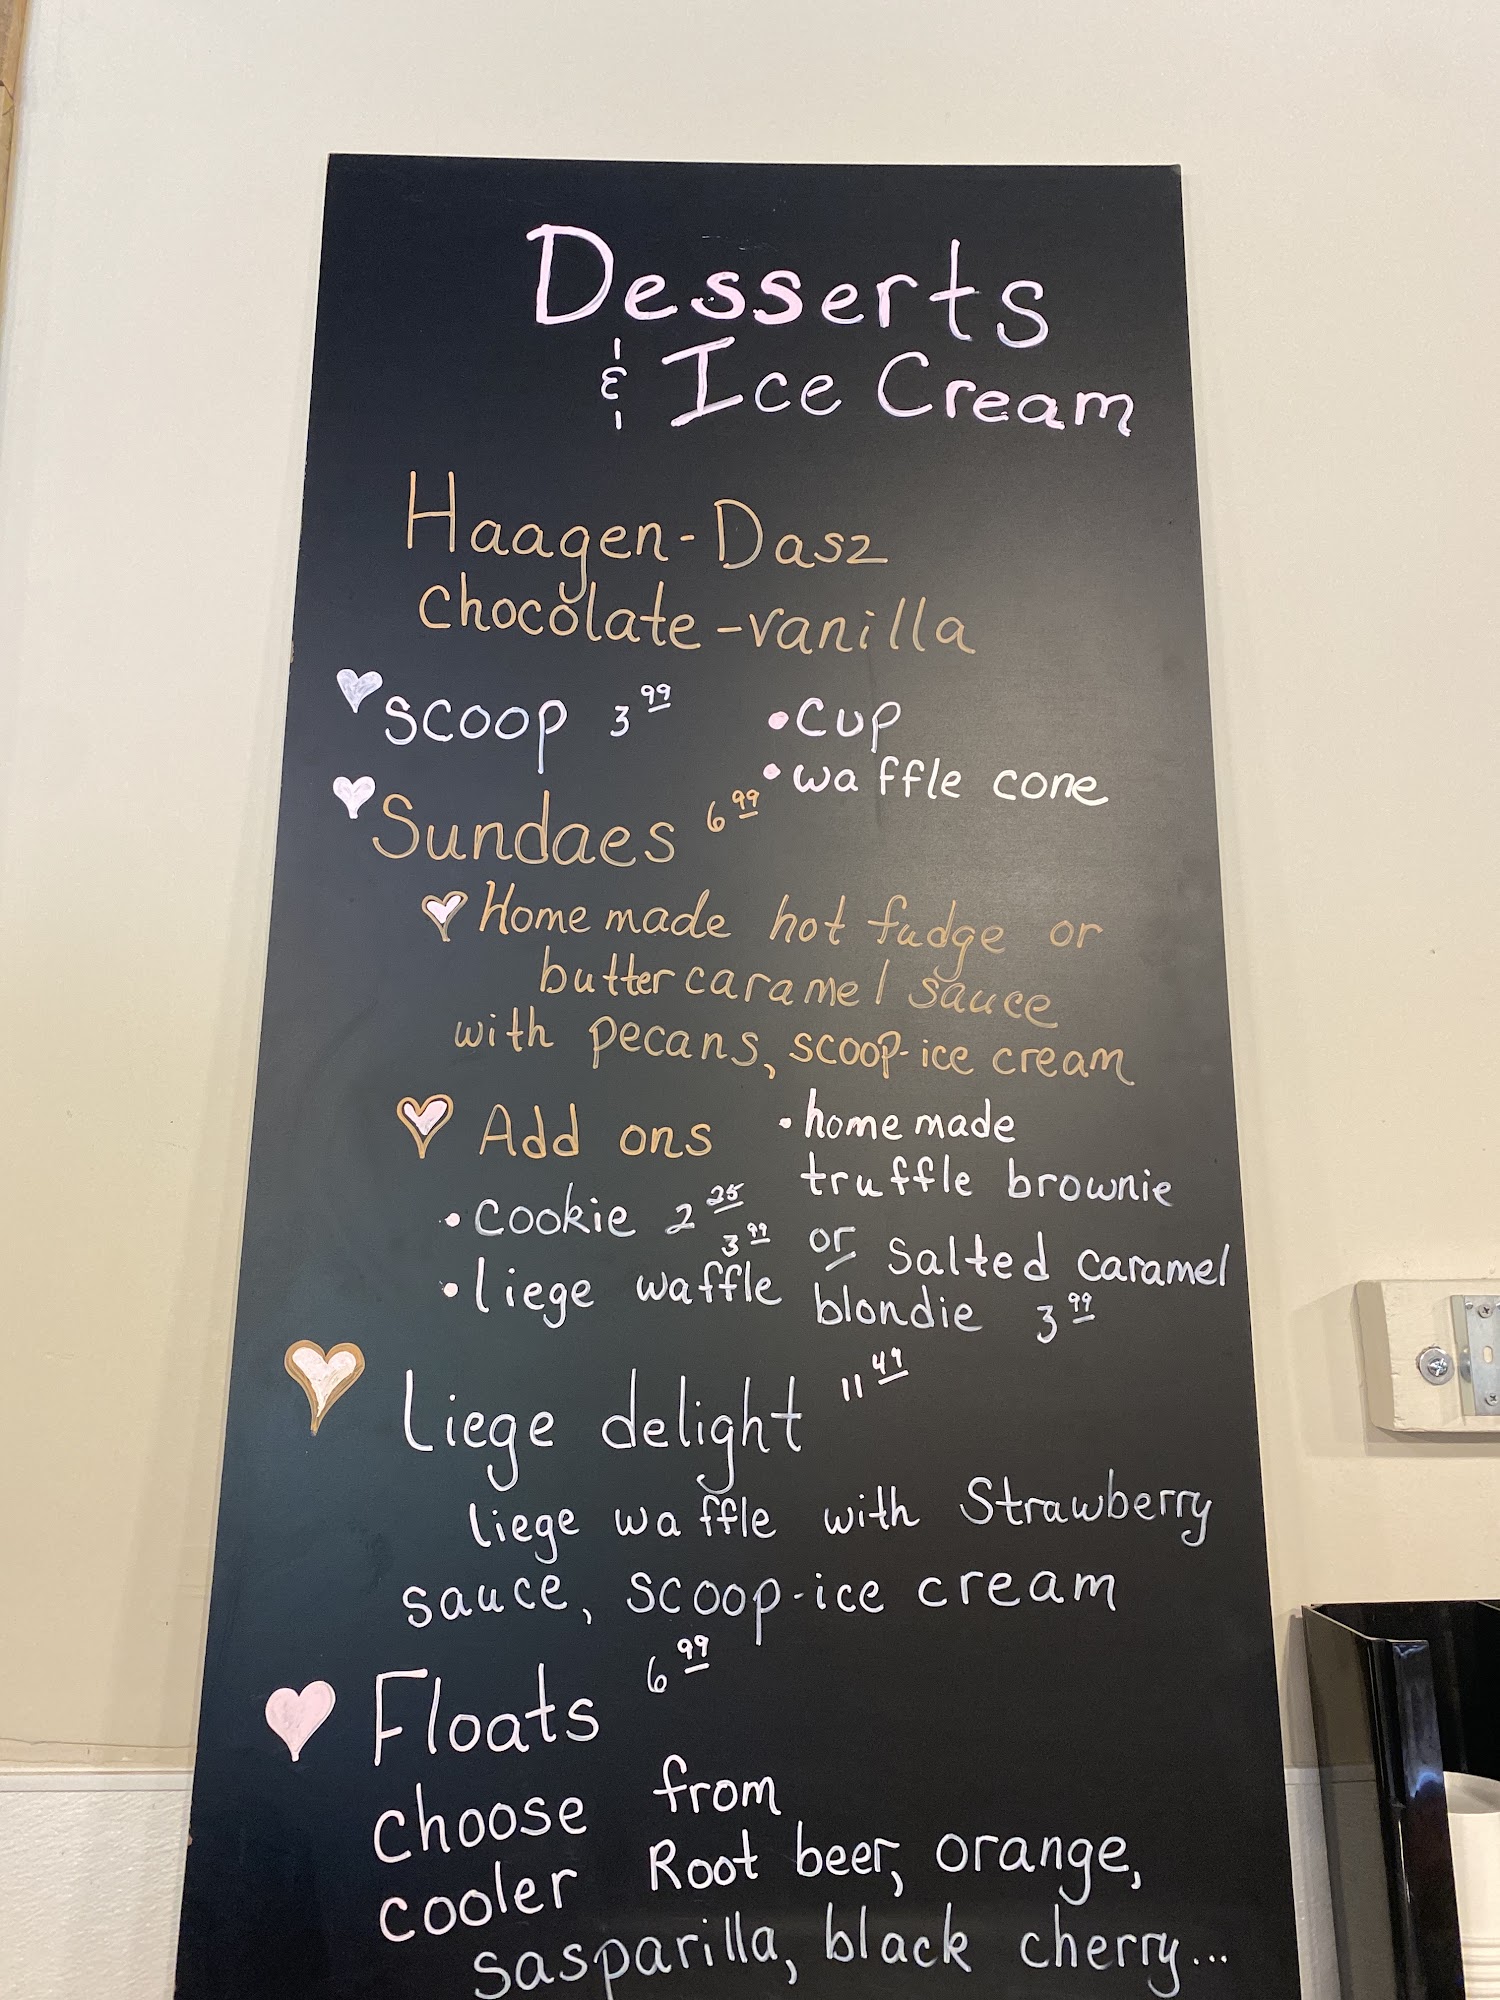 Desserts
& Ice Cream
Haagen-Dasz
chocolate-vanilla
scoop 3 99
• cup
• waffle cone
Sundaes 6 99
Home made hot fudge or
butter caramel sauce
with pecans, scoop-ice cream
Add ons
• cookie 2 25
• liege waffle 3 99
• home made
truffle brownie
or salted caramel
blondie 3 99
Liege delight 11 49
liege waffle with Strawberry
sauce, scoop-ice cream
Floats 6 99
choose from
cooler Root beer, orange,
sasparilla, black cherry...